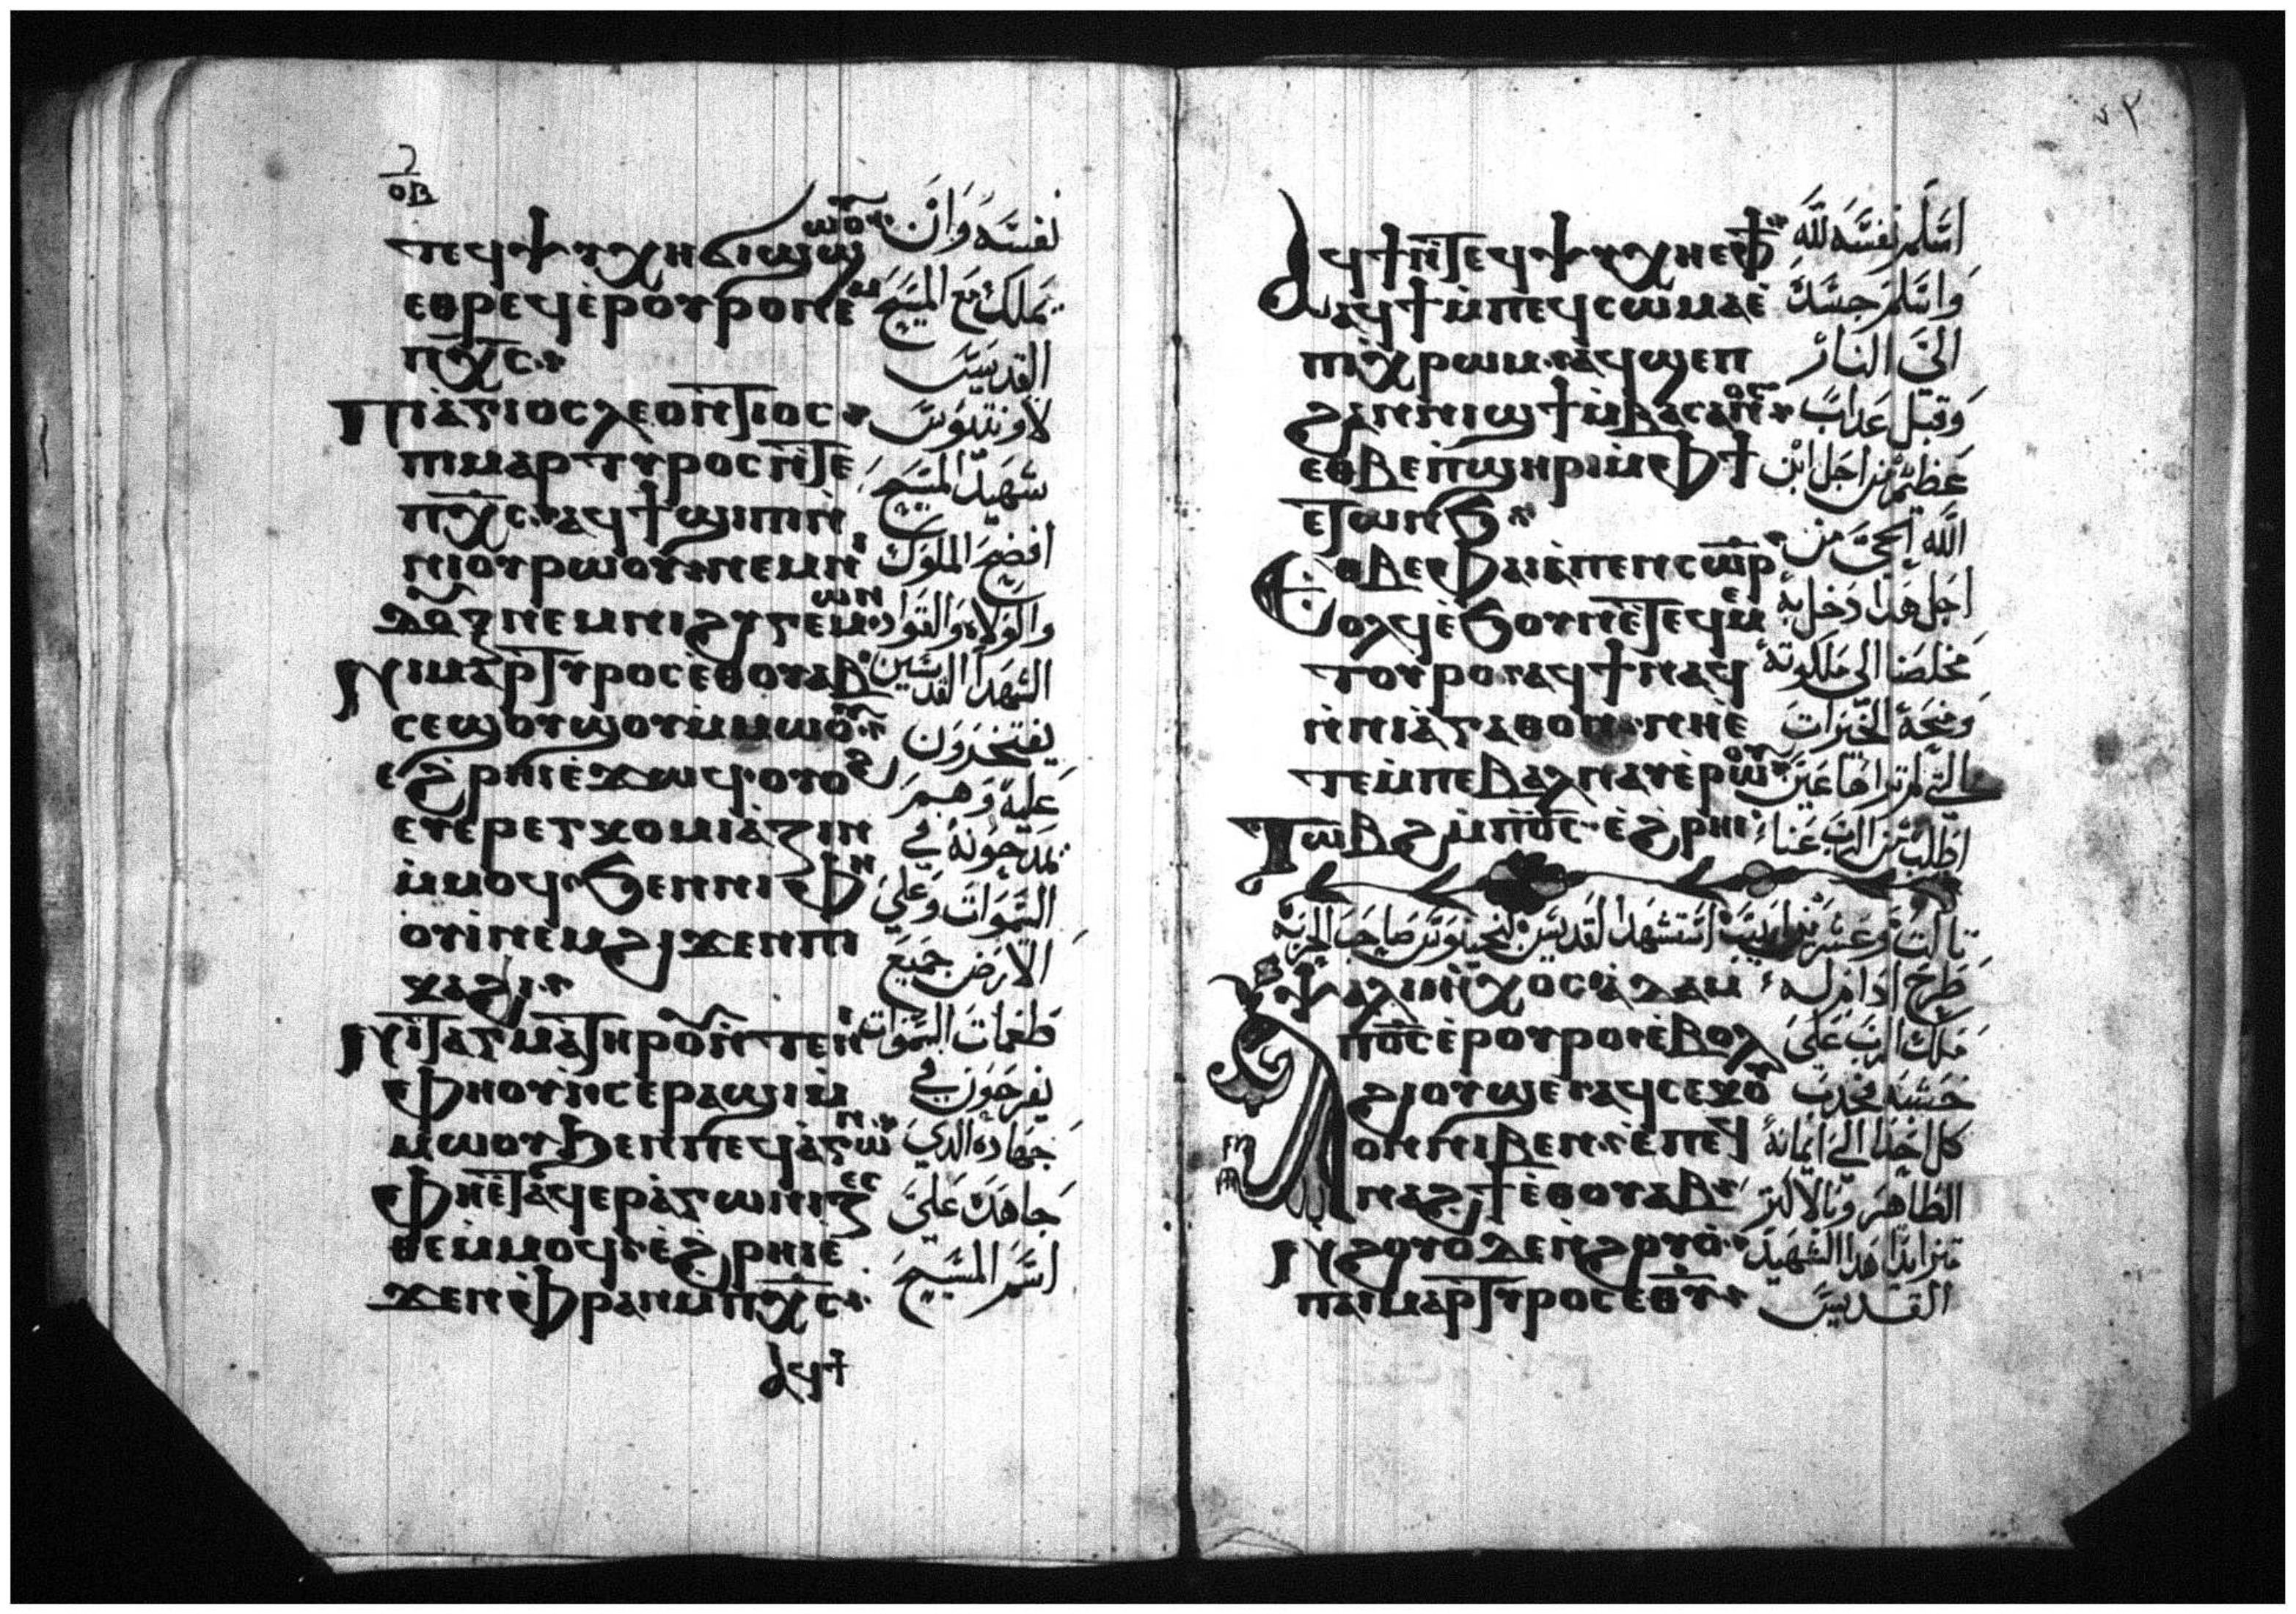 ⲟⲃ
ⲧⲉϥⲯⲩⲭⲏ ϭⲓϣϣⲱⲟⲩ
نفسه وان
ⲉⲑⲣⲉϥⲉ̀ⲣⲟⲩⲣⲟ ⲛⲉⲙ
يملك مع المسيح
ⲡⲭ̅ⲥ̅
القديس
Ⲡⲓⲁ̀ⲅⲓⲟⲥ ⲗⲉⲟⲛⲧⲓⲟⲥ
لاونتيوس
ⲡⲓⲙⲁⲣⲧⲩⲣⲟⲥ ⲛ̀ⲧⲉ
شهيد المسيح
ⲡⲭ̅ⲥ̅ ⲁϥϯϣⲓⲡⲓ ⲛ̀
افضح الملوك
ⲛⲓⲟⲩⲣⲱⲟⲩ ⲛⲉⲙ ⲛⲓ
والولاه والقواد
ⲇⲟⲩⲝ ⲛⲉⲙ ⲛⲓϩⲩⲅⲉⲙⲱⲛ
الشهدا القديسين
Ⲛⲓⲙⲁⲣⲧⲩⲣⲟⲥ ⲉ̀ⲑⲟⲩⲁⲃ
يفتخرون
ⲥⲉϣⲟⲩϣⲟⲩ ⲙ̀ⲙⲱⲟⲩ
عليه وهم
ⲉ̀ϩⲣⲏⲓ ⲉ̀ϫⲱϥ ⲟⲩⲟϩ
يمدحونه في
ⲉⲩⲉⲣⲉⲩⲕⲟⲙⲓⲁⲍⲓⲛ
السموات وعلي
ⲙ̀ⲙⲟϥ ϧⲉⲛ ⲛⲓⲫⲏ
الارض جميع
ⲟⲩⲓ̀ ⲛⲉⲙ ϩⲓϫⲉⲛ ⲡⲓ
ⲕⲁϩⲓ
طغمات السموات
Ⲛⲓⲧⲁⲅⲙⲁ ⲧⲏⲣⲟⲩ ⲛ̀ⲧⲉ ⲛⲓ
يفرحون في
ⲫⲏⲟⲩⲓ̀ ⲥⲉⲣⲁϣⲓ ⲙ̀
جهاده الذي
ⲙⲱⲟⲩ ϧⲉⲛ ⲡⲉϥⲁ̀ⲅⲱⲛ
جاهد علي
ⲫⲏⲉ̀ⲧⲁϥⲉⲣⲁ̀ⲅⲱⲛⲓⲍⲉⲥ
اسم المسيح
ⲑⲉ ⲙ̀ⲙⲟϥ ⲉ̀ϩⲣⲏⲓ ⲉ̀
ϫⲉⲛ ⲫⲣⲁⲛ ⲙ̀ⲡⲭ̅ⲥ̅
ⲁϥϯ
Ⲁϥϯ ⲛ̀ⲧⲉϥⲯⲩⲭⲏ ⲉ̀ⲫϯ
اسلم نفسه لله
ⲁϥϯ ⲙ̀ⲡⲉϥⲥⲱⲙⲁ ⲉ̀
واسلم جسده
ⲡⲓⲭⲣⲱⲙ ⲁϥϣⲉⲡ
الي النار
ϩⲁⲛⲛⲓϣϯ ⲙ̀ⲃⲁⲥⲁⲛⲟⲥ
وقبل عذاب
ⲉⲑⲃⲉ ⲡϣⲏⲣⲓ ⲙ̀ⲫϯ
عظيم من اجل ابن
ⲉⲧⲱⲛϧ
الله الحي من
Ⲉⲑⲃⲉ ⲫⲁⲓ ⲁ̀ ⲡⲉⲛⲥⲱⲣ
اجل هذا دخل به
ⲟⲗϥ ⲉ̀ϧⲟⲩⲛ ⲉ̀ⲧⲉϥⲙⲉ
مخلصنا الي ملكوته
ⲧⲟⲩⲣⲟ ⲁϥϯ ⲛⲁϥ
ومنحه الخيرات
ⲛ̀ⲛⲓⲁ̀ⲅⲁⲑⲟⲛ ⲛⲏⲉ̀
التي لم تراها عين
ⲧⲉ ⲙ̀ⲡⲉ ⲃⲁⲗ ⲛⲁⲩ ⲉ̀ⲣⲱⲟⲩ
اطلب من الرب عنا
Ⲧⲱⲃϩ ⲙ̀ⲡⲟ̅ⲥ̅ ⲉ̀ϩⲣⲏⲓ
تالت وعشرين ابيب استشهد القديس لنجينوس صاحب الحربه
ⲯⲁⲗⲓ ⲛ̀ⲏⲭⲟⲥ ⲁⲇⲁⲙ
طرح ادام له
Ⲁ ⲡⲟ̅ⲥ̅ ⲉ̀ⲣⲟⲩⲣⲟ ⲉ̀ⲃⲟⲗ
ملك الرب علي
ϩⲓ ⲟⲩϣⲉ ⲁϥⲥⲉⲕ ⲟⲩ
خشبه فجذب
ⲟⲛ ⲛⲓⲃⲉⲛ ⲉ̀ⲡⲉϥ
كل احد الي ايمانه
ⲛⲁϩϯ ⲉ̀ⲑⲟⲩⲁⲃ
الطاهر وبالاكتر
Ⲛϩⲟⲩⲟ ⲇⲉ ⲛ̀ϩⲟⲩⲟ
متزايدا هذا الشهيد
ⲡⲁⲓⲙⲁⲣⲧⲩⲣⲟⲥ ⲉ̅ⲑ̅ⲩ̅
القديس